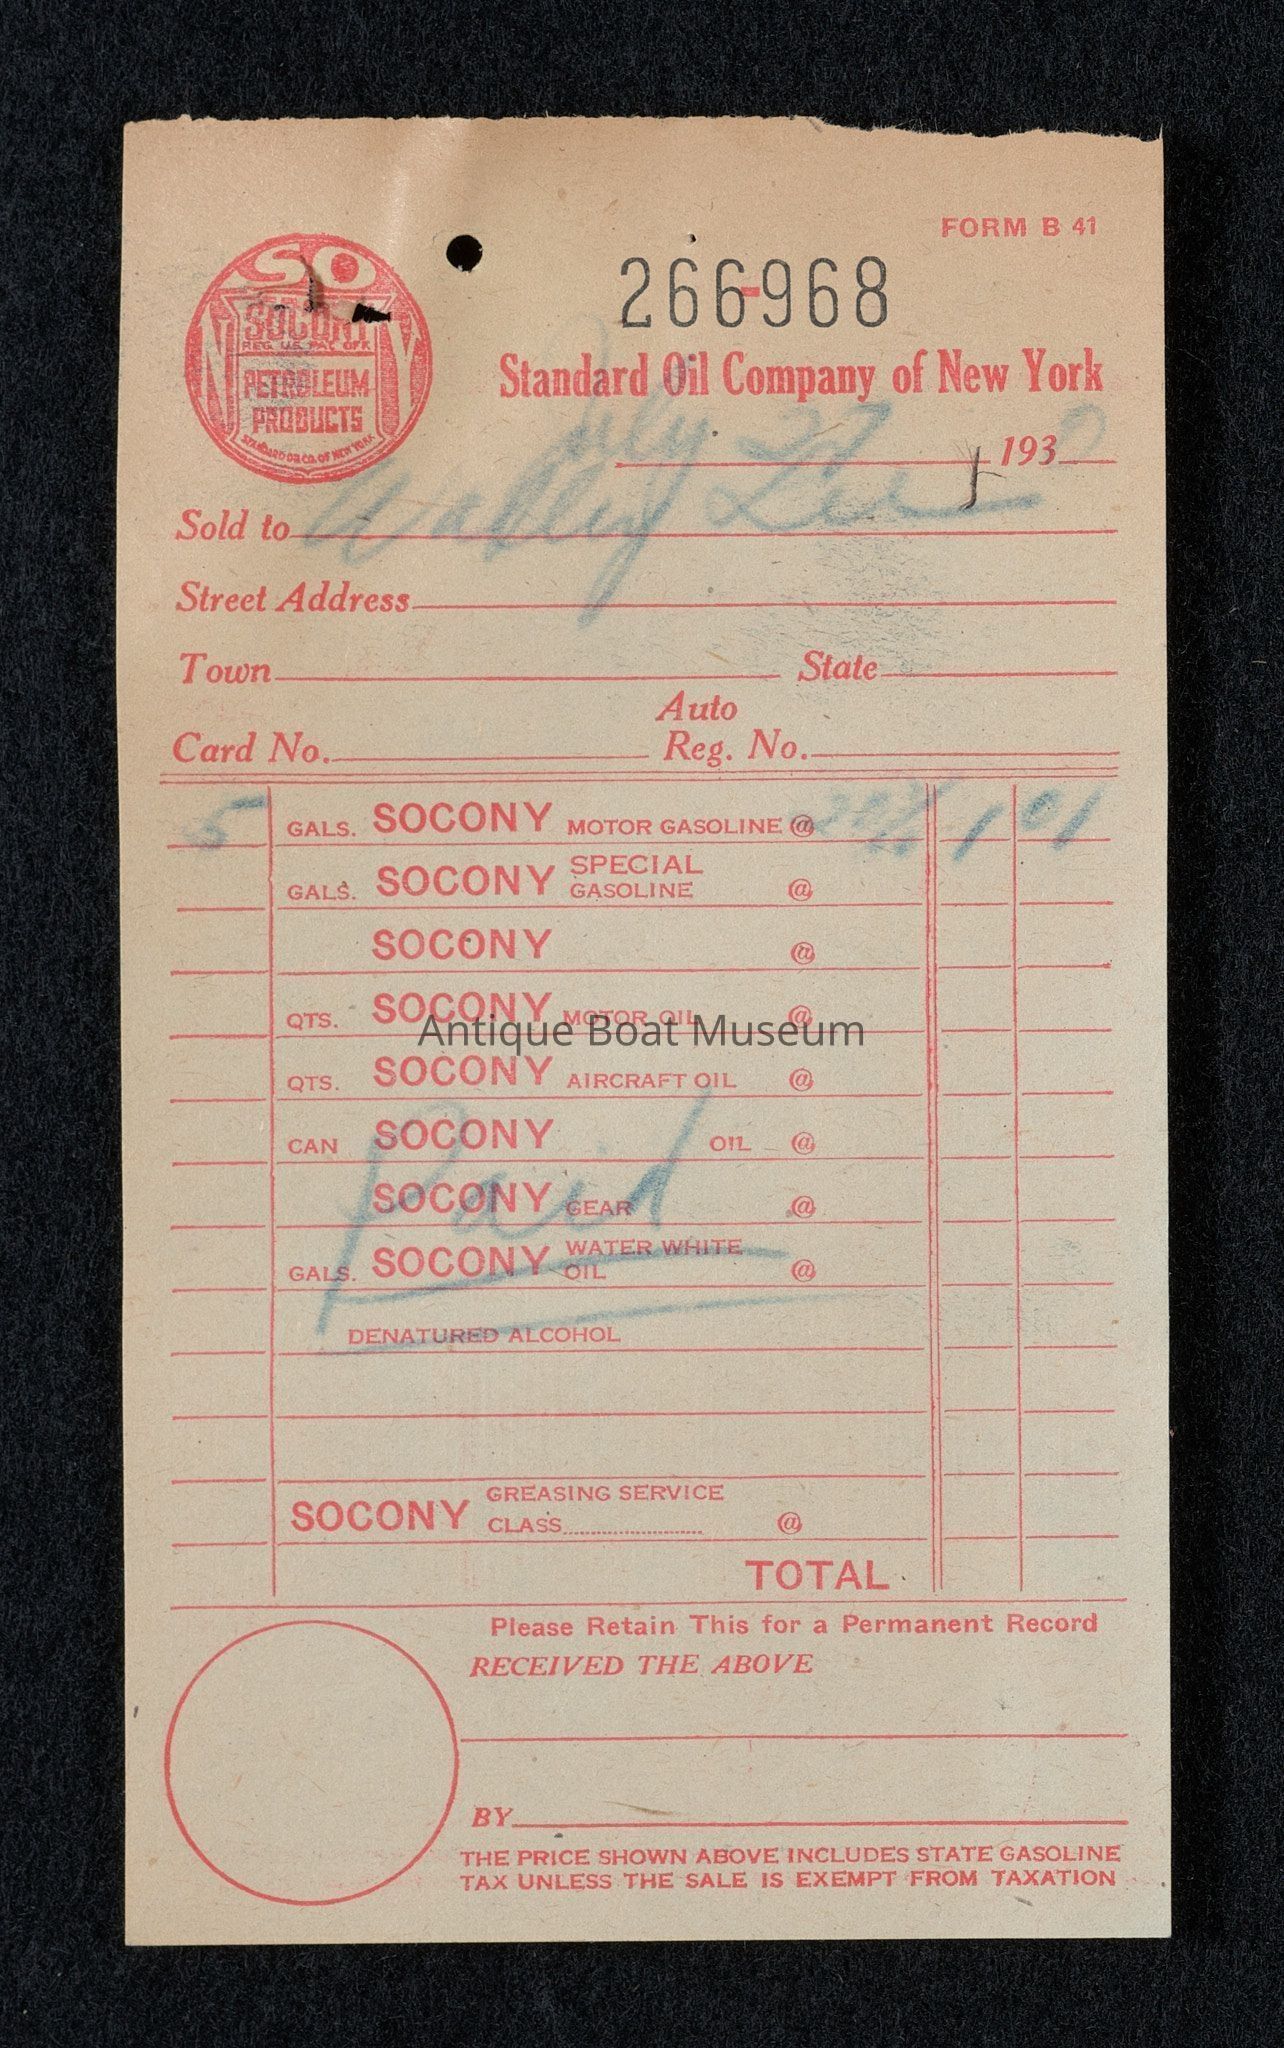 FORM B 41
SO
SOCONY
REG. U.S. PAT. OFF.
N Y
PETROLEUM
PRODUCTS
STANDARD OIL CO. OF NEW YORK
266-968
Standard Oil Company of New York
July 193
Sold to Wally
Street Address
Town State
Card No. Auto Reg. No.
5 GALS. SOCONY MOTOR GASOLINE @ 1 01
GALS. SOCONY SPECIAL GASOLINE @
SOCONY @
QTS. SOCONY MOTOR OIL @
Antique Boat Museum
QTS. SOCONY AIRCRAFT OIL @
CAN SOCONY OIL @
Paid
SOCONY GEAR @
GALS. SOCONY WATER WHITE OIL @
DENATURED ALCOHOL
SOCONY GREASING SERVICE
CLASS @
TOTAL
Please Retain This for a Permanent Record
RECEIVED THE ABOVE
BY
THE PRICE SHOWN ABOVE INCLUDES STATE GASOLINE
TAX UNLESS THE SALE IS EXEMPT FROM TAXATION